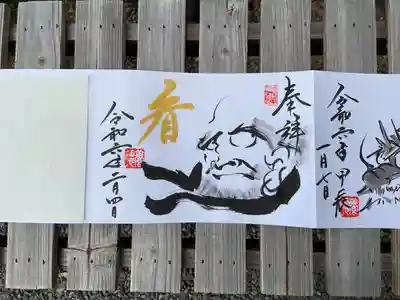 令和六年 甲辰
一月七日
奉拝
看
令和六年二月四日